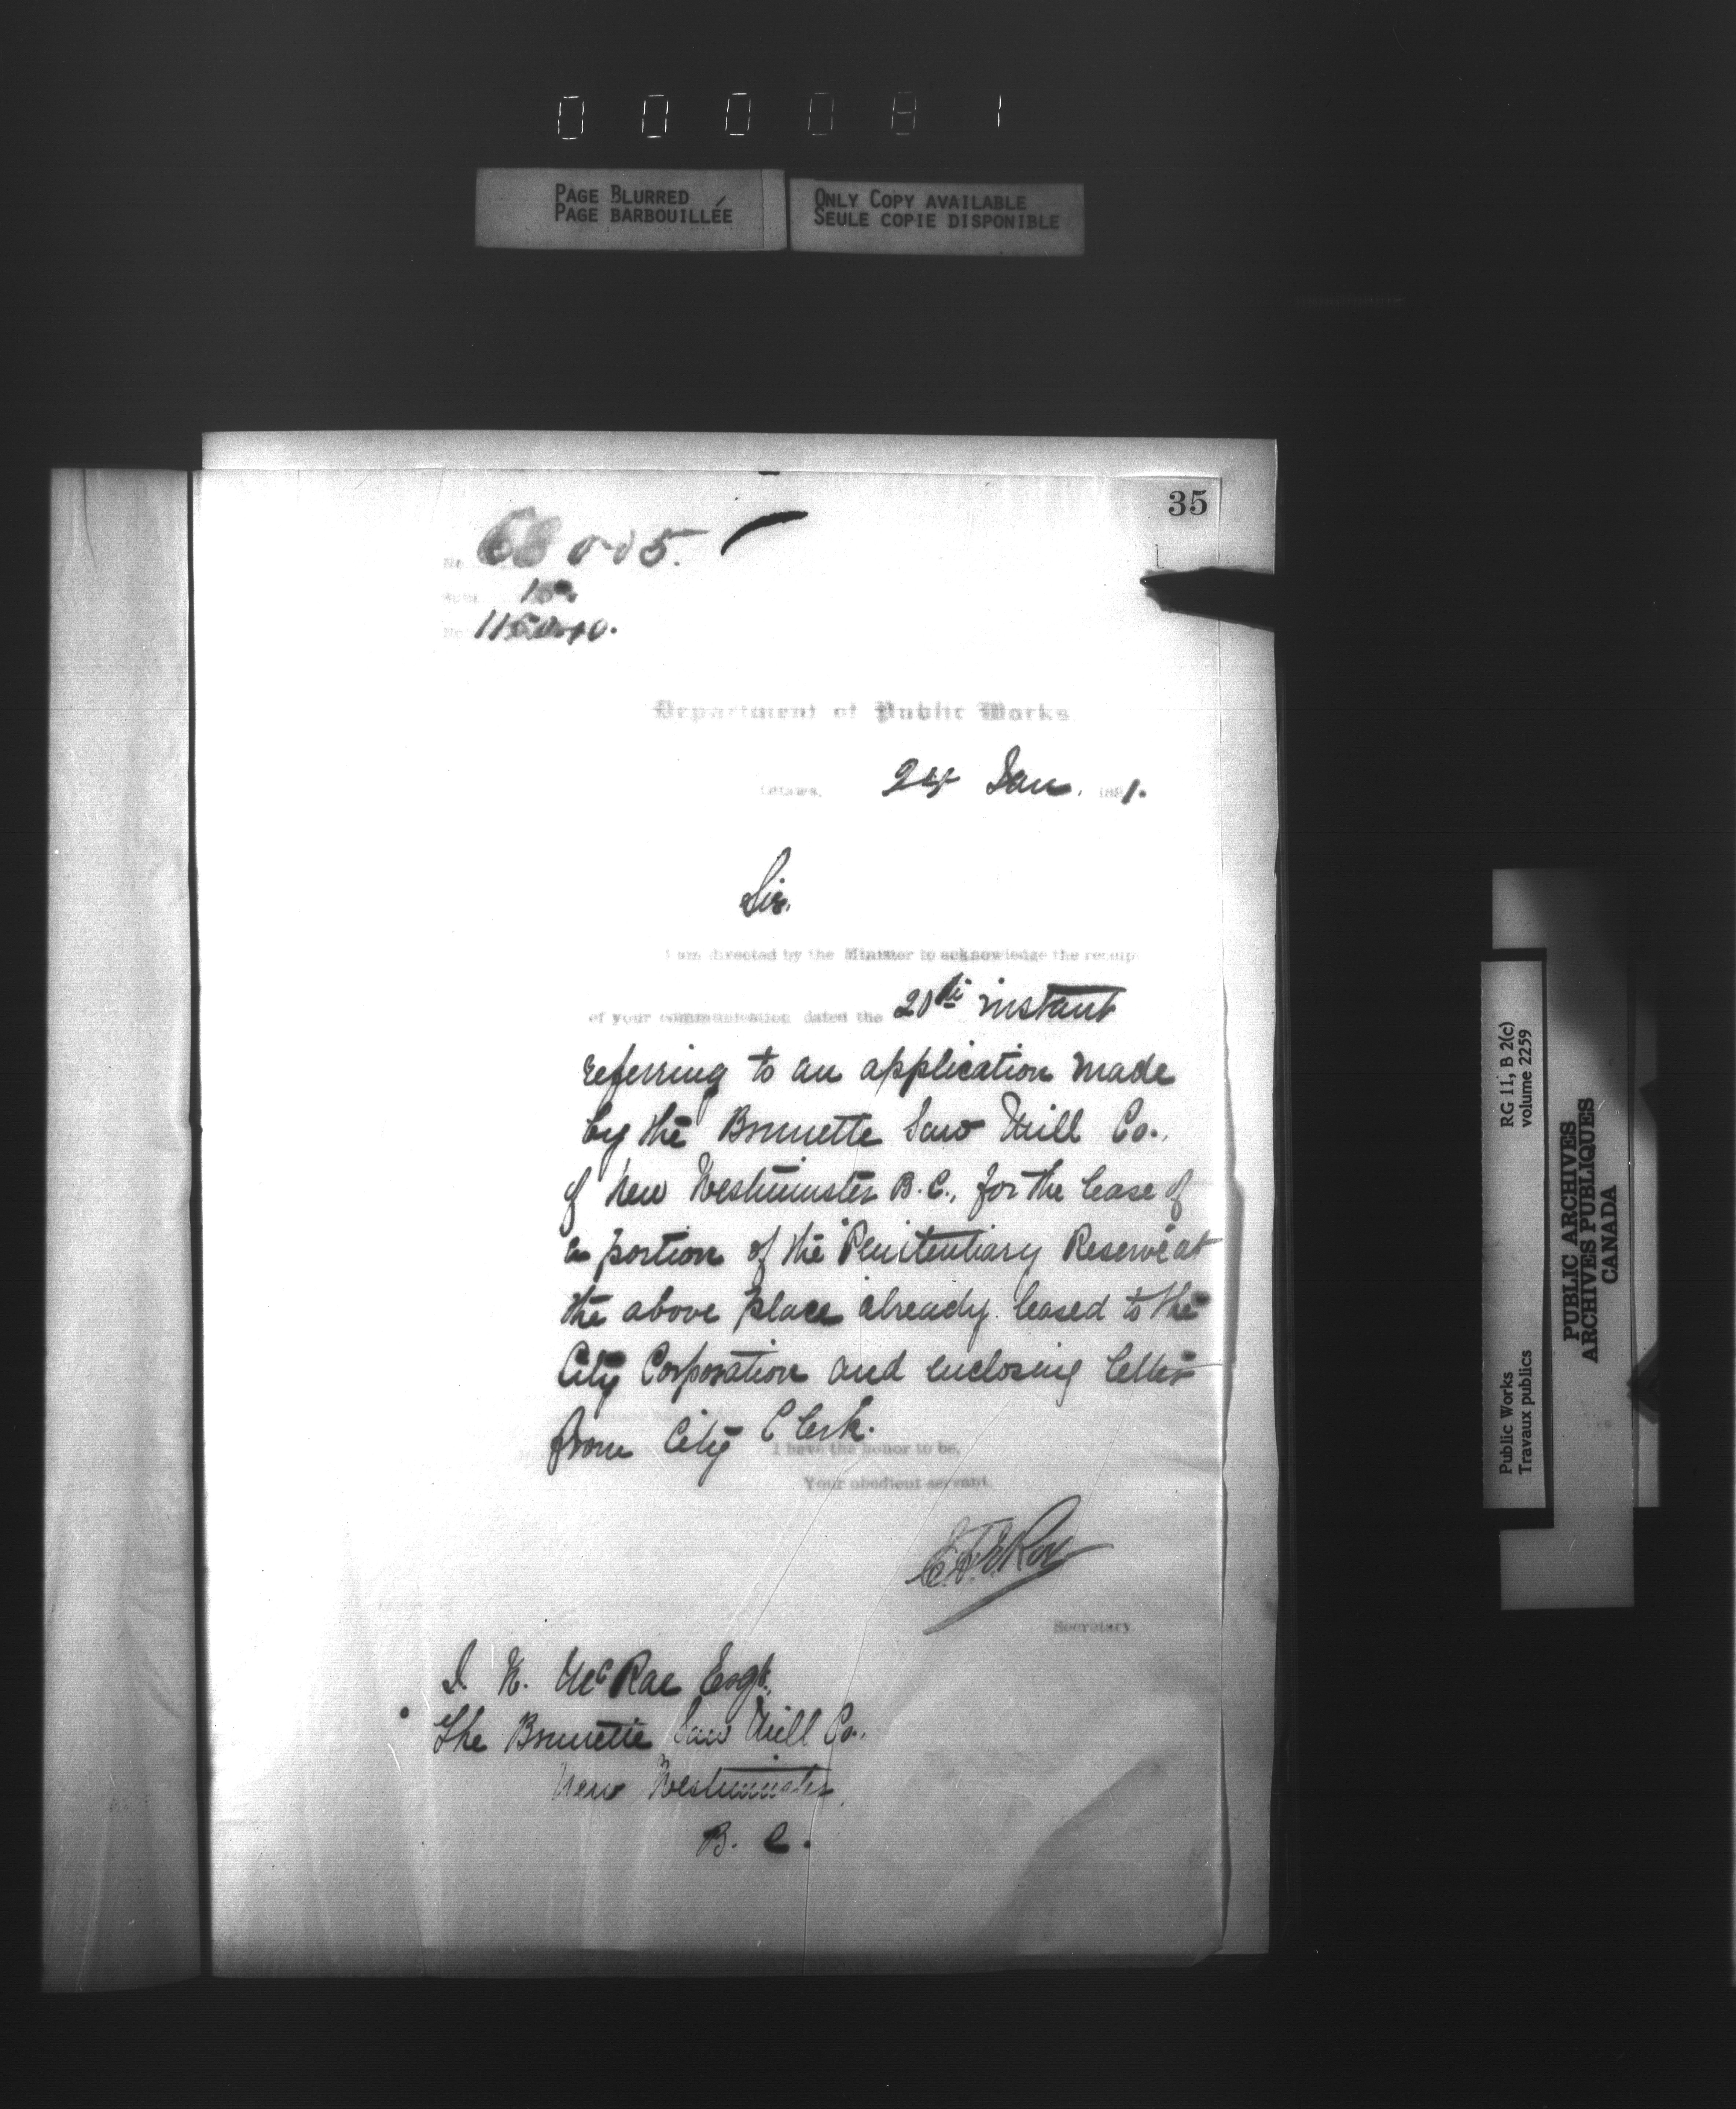 000081
PAGE BLURRED
PAGE BARBOUILLÉE
ONLY COPY AVAILABLE
SEULE COPIE DISPONIBLE
35
No
Department of Public Works
Ottawa, 24 Jan. 1891.
Sir,
I am directed by the Minister to acknowledge the receip
of your communication dated the 20th instant
referring to an application made
by the Brunette Saw Mill Co.,
of New Westminster B.C., for the lease of
a portion of the Penitentiary Reserve at
the above place already leased to the
City Corporation and enclosing letter
from City Clerk.
I have the honor to be,
Your obedient servant,
E.F.E. Roy
Secretary.
McRae Esqr.,
The Brunette Saw Mill Co.,
New Westminster,
B. C.
RG 11, B 2(c)
volume 2259
Public Works
Travaux publics
PUBLIC ARCHIVES
ARCHIVES PUBLIQUES
CANADA